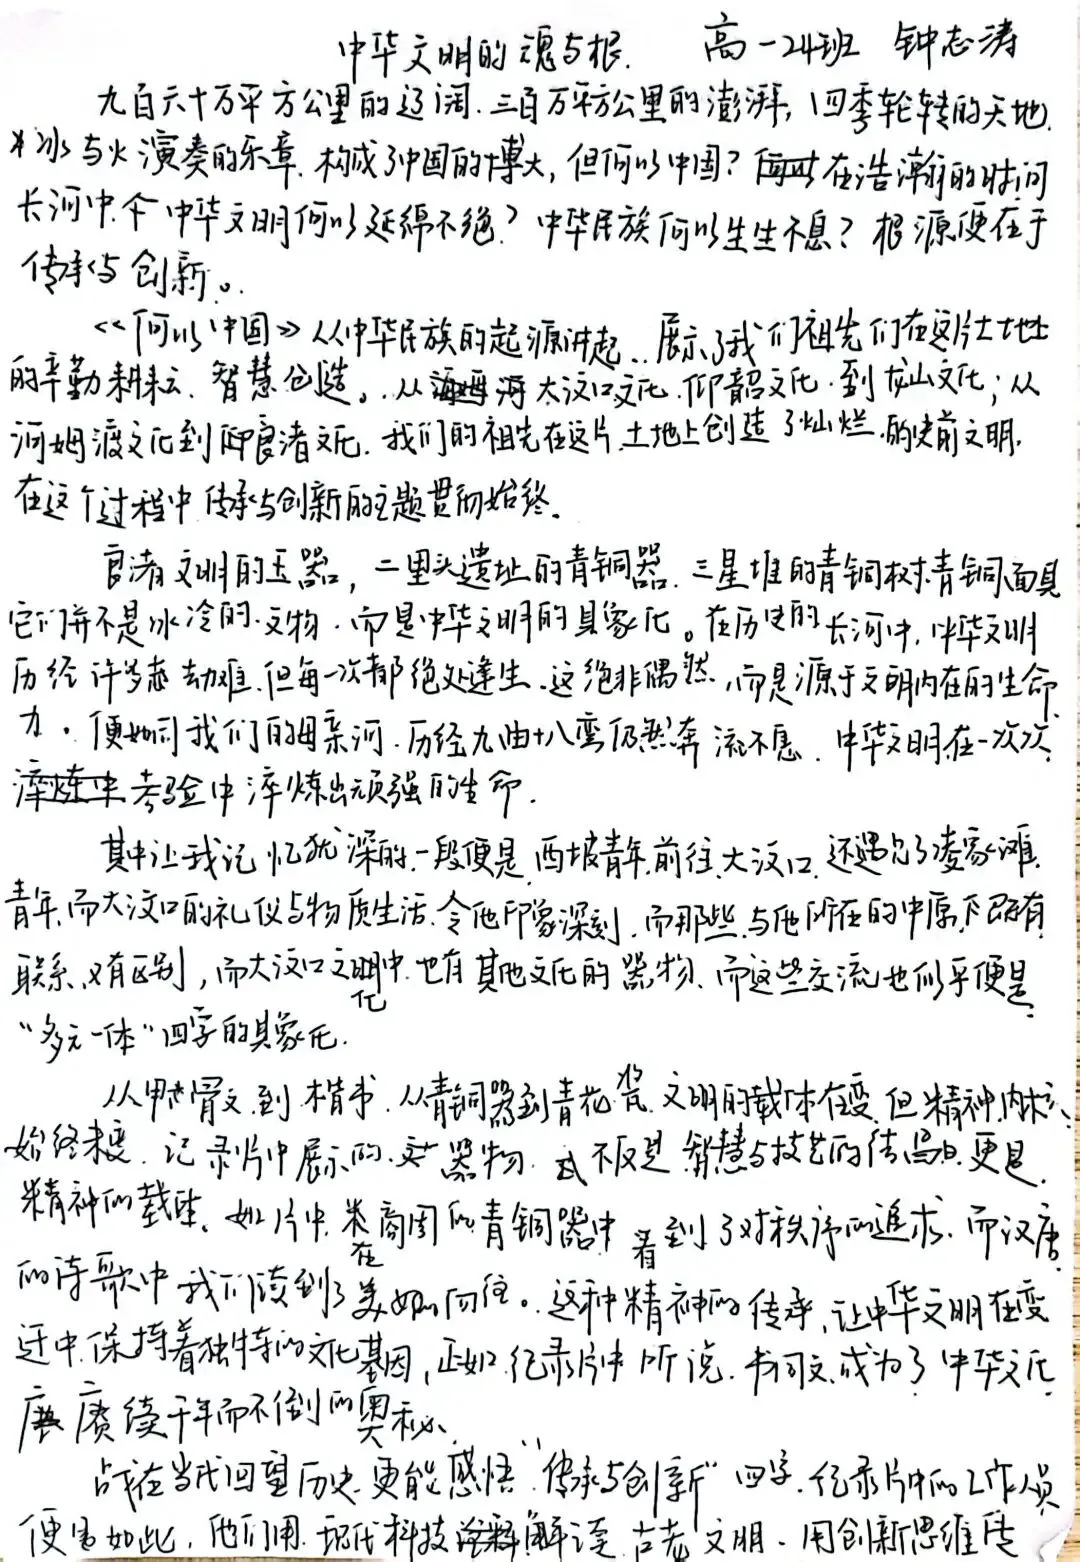 中华文明的魂与根. 高一24班 钟志涛
九百六十万平方公里的辽阔.三百万平方公里的澎湃,四季轮转的天地.
冰与火演奏的乐章.构成了中国的博大,但何以中国?在浩瀚的时间
长河中.个中华文明何以延绵不绝?中华民族何以生生不息?根源便在于
传承与创新。
《何以中国》从中华民族的起源讲起..展示了我们祖先们在这片土地
的辛勤耕耘.智慧创造。.从大汶口文化.仰韶文化.到龙山文化;从
河姆渡文化到良渚文化.我们的祖先在这片土地上创造了灿烂的史前文明.
在这个过程中传承与创新的主题贯彻始终.
良渚文明的玉器,二里头遗址的青铜器.三星堆的青铜树青铜面具
它们并不是冰冷的.文物.而是中华文明的具象化。在历史的长河中,中华文明
历经许多劫难.但每一次都绝处逢生.这绝非偶然,而是源于文明内在的生命
力.便如同我们的母亲河.历经九曲十八弯仍然奔流不息.中华文明在一次次
考验中淬炼出顽强的生命.
其中让我记忆犹深的一段便是西坡青年前往大汶口.还遇见了凌家滩
青年,而大汶口的礼仪与物质生活令他印象深刻.而那些与他所在的中原既有
联系又有区别,而大汶口文化中.也有其他文化的器物.而这些交流也似乎便是
“多元一体”四字的具象化.
从甲骨文到楷书.从青铜器到青花瓷.文明的载体在变.但精神内核
始终未变.记录片中展示的器物.不仅是智慧与技艺的传承.更是
精神的载体.如片中在商周的青铜器中看到了对秩序的追求.而汉唐
的诗歌中我们读到了美好的向往。.这种精神的传承,让中华文明在变
迁中.保持着独特的文化基因,正如纪录片中所说.书同文.成为了中华文化
赓续千年而不倒的奥秘.
站在当代回望历史.更能感悟“传承与创新”四字.纪录片中的工作人员
便是如此.他们用现代科技解读古老文明.用创新思维传